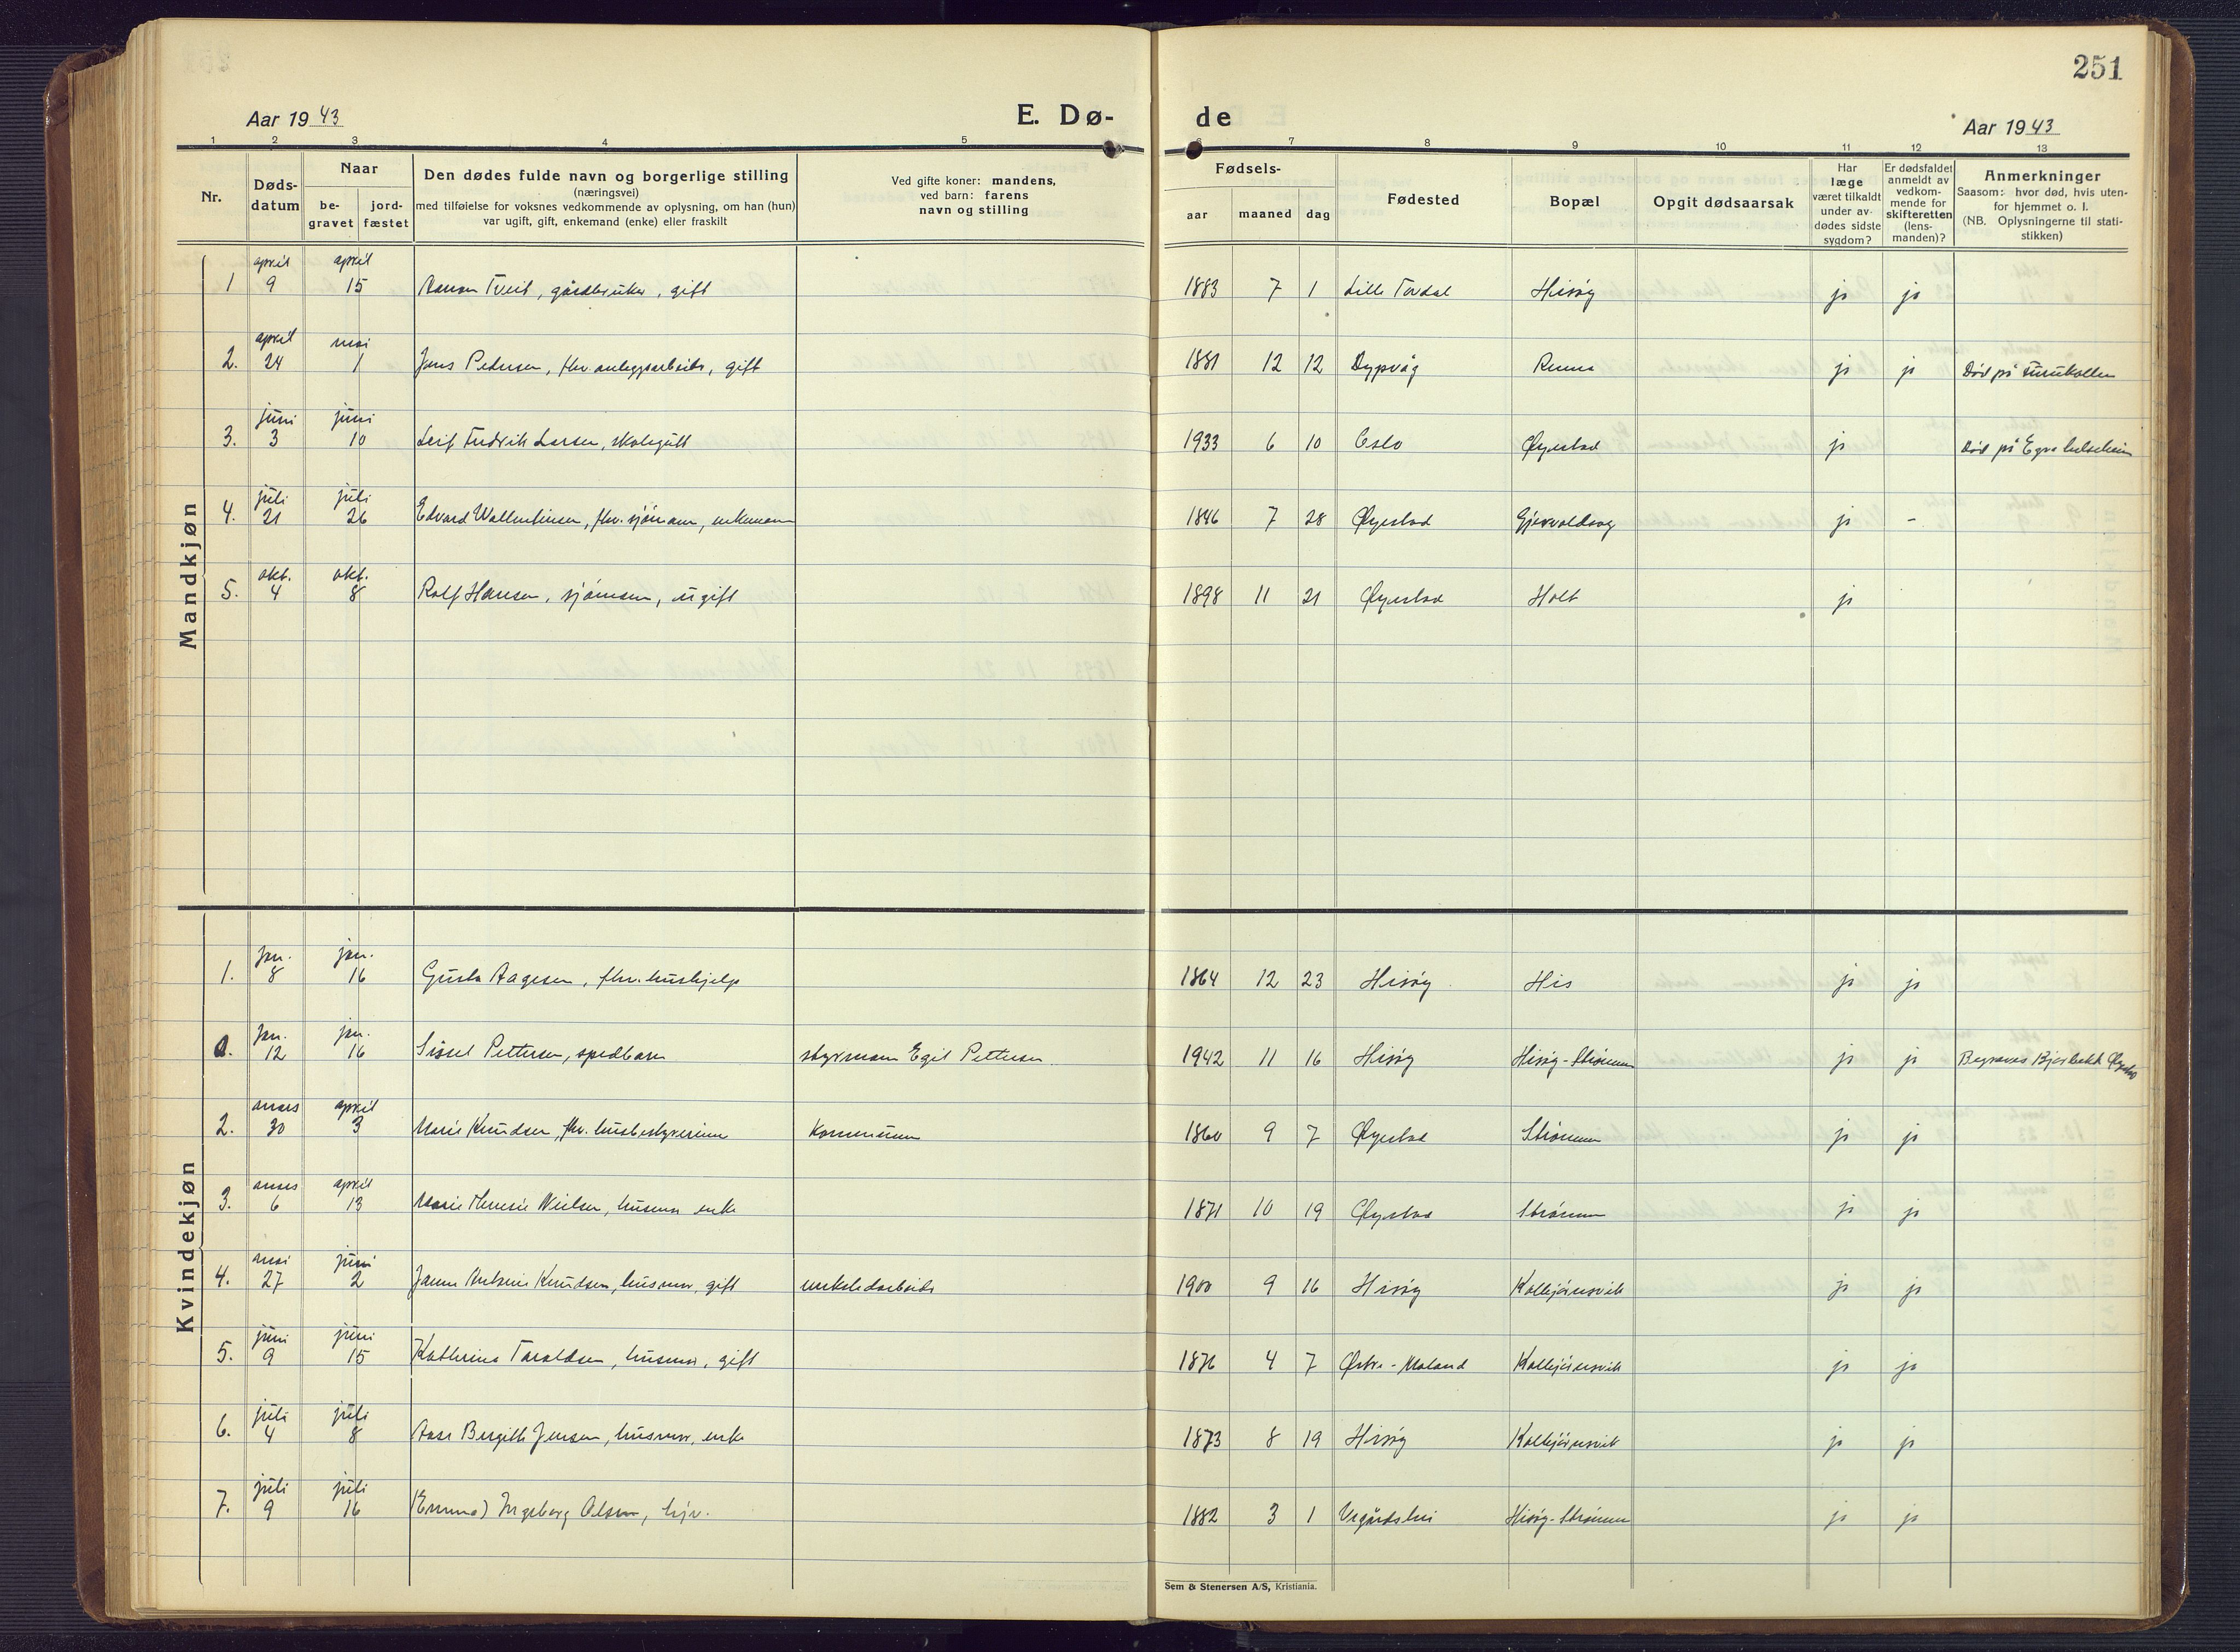 251
Aar 1943 E. Dø- de Aar 1943
1 2 3 4 5 6 7 8 9 10 11 12 13
Nr.
Døds-
datum
Naar
be-
gravet
jord-
fæstet
Den dødes fulde navn og borgerlige stilling
(næringsvei)
med tilføielse for voksnes vedkommende av oplysning, om han (hun)
var ugift, gift, enkemand (enke) eller fraskilt
Ved gifte koner: mandens,
ved barn: farens
navn og stilling
Fødsels-
aar maaned dag
Fødested
Bopæl
Opgit dødsaarsak
Har
læge
været tilkaldt
under av-
dødes sidste
sygdom?
Er dødsfaldet
anmeldt av
vedkom-
mende for
skifteretten
(lens-
manden)?
Anmerkninger
Saasom: hvor død, hvis uten-
for hjemmet o. l.
(NB. Oplysningerne til stati-
stikken)
Mandkjøn
april april
1 9 15 Tveit, gårdbruker, gift 1883 7 1 Lille Tovdal Hisøy ja ja
april mai
2. 24 1 Jens Pedersen, fhv. anleggsarbeider, gift 1881 12 12 Dypvåg ja ja Død på
juni juni
3. 3 10 Leif Fredrik Larsen, skolegutt 1933 6 10 Oslo Øyestad ja Død på
juli juli
4. 21 26 Edvard fhv. sjømann, enkemann 1846 7 28 Øyestad ja -
okt. okt.
5. 4 8 Rolf Hansen, sjømann, ugift 1898 11 21 Øyestad Holt ja
Kvindekjøn
jan. jan.
1. 8 16 Gusta Aagesen, fhv. hushjelp 1864 12 23 Hisøy His ja ja
jan. jan.
12 16 Sissel Pettersen, spedbarn styrmann Egil Pettersen 1942 11 16 Hisøy Hisøy-Strømmen ja ja Begraves Bjorbekk Øyestad
mars april
2. 30 3 Marie Knudsen, fhv. husbestyrerinne 1860 9 7 Øyestad Strømmen ja ja
mars april
3. 6 13 Marie Nielsen, husmor enke 1871 10 19 Øyestad Strømmen ja ja
mai juni
4. 27 2 Knudsen, husmor, gift verkstedarbeider 1900 9 16 Hisøy Kolbjørnsvik ja ja
juni juni
5. 9 15 Kathrine Taraldsen, husmor, gift 1876 4 7 Østre-Moland Kolbjørnsvik ja ja
juli juli
6. 4 8 Aase Birgitte Jensen, husmor, enke 1873 8 19 Hisøy Kolbjørnsvik ja ja
juli juli
7. 9 16 (Emma) Ingeborg Olsen, 1882 3 1 Vegårdshei Hisøy-Strømmen ja ja
Sem & Stenersen A/S, Kristiania.